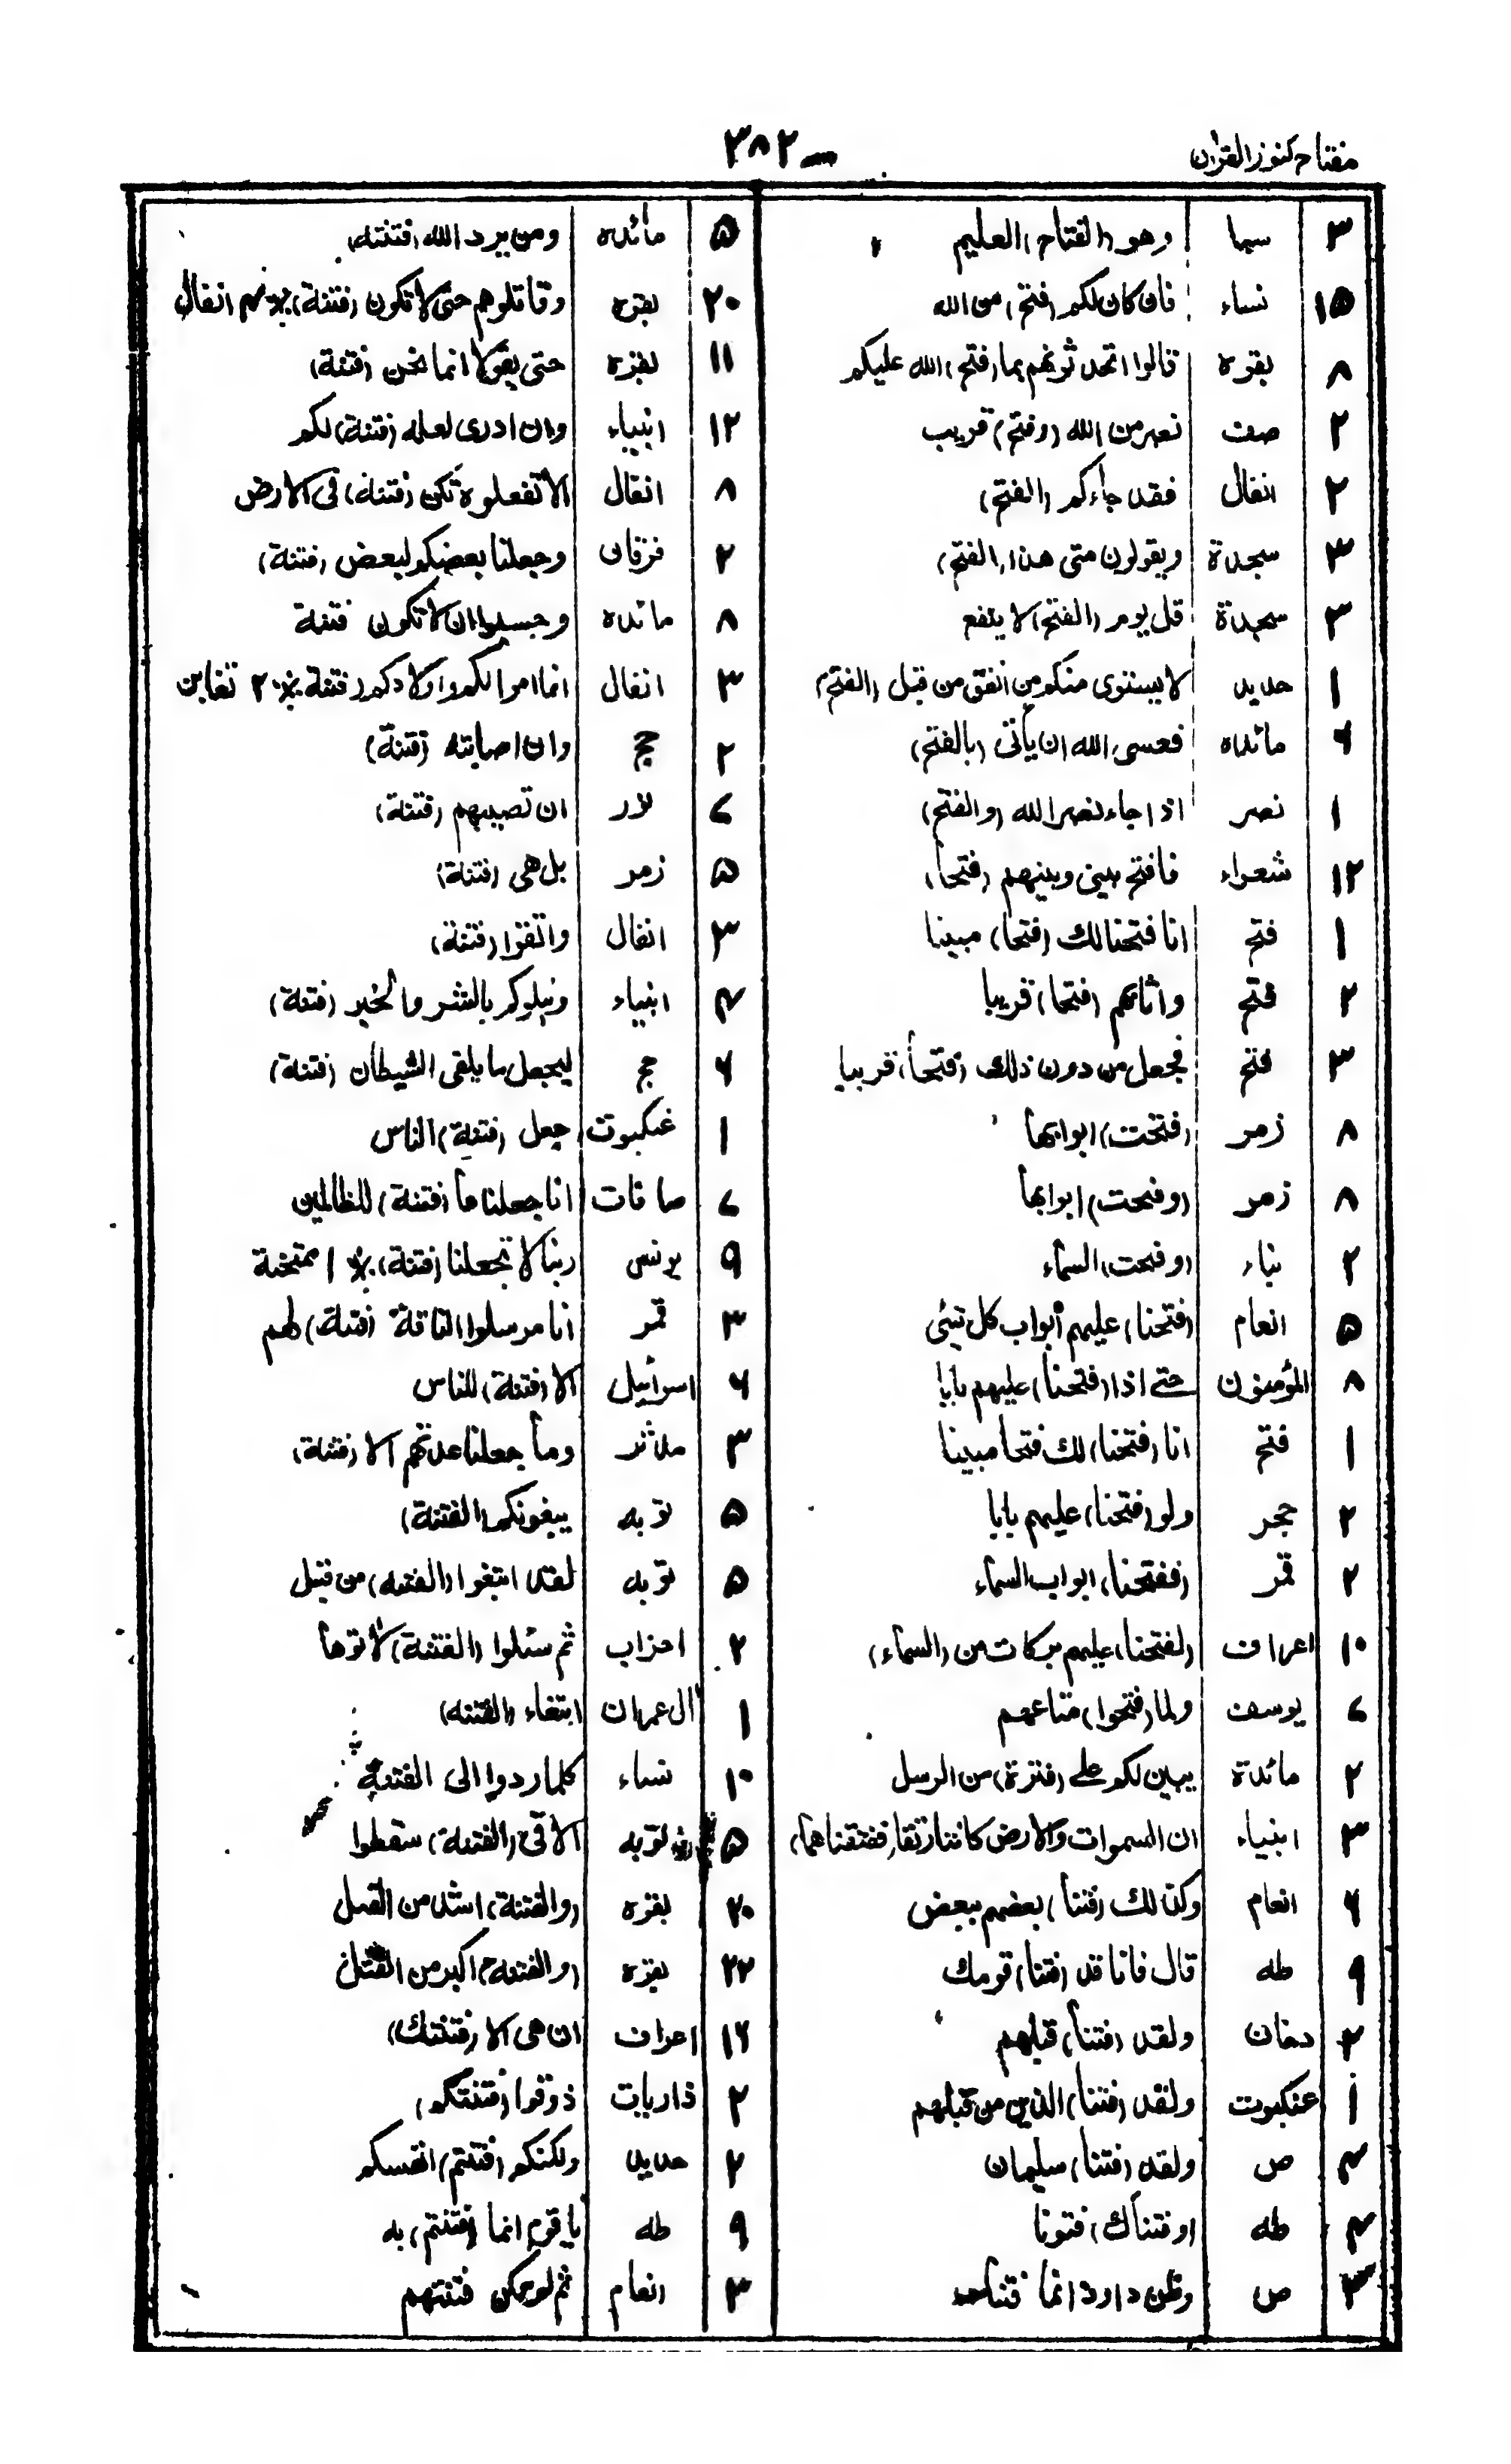 مفتاح كنوز القران
٣٨٢
٣ سبا وهو (الفتاح) العليم
١٥ نساء فان كان لكم (فتح) من الله
٨ بقره قالوا اتحدثونهم بما (فتح) الله عليكم
٢ صف نصر من الله (وفتح) قريب
٢ انفال فقد جاءكم (الفتح)
٣ سجدة ويقولون متى هذا (الفتح)
٣ سجدة قل يوم (الفتح) لا ينفع
١ حديد لا يستوى منكم من انفق من قبل (الفتح)
٦ مائده فعسى الله ان يأتى (بالفتح)
١ نصر اذا جاء نصر الله (والفتح)
١٢ شعراء فافتح بينى وبينهم (فتحا)
١ فتح انا فتحنا لك (فتحا) مبينا
٢ فتح واثابهم (فتحا) قريبا
٣ فتح فجعل من دون ذلك (فتحا) قريبا
٨ زمر (فتحت) ابوابها
٨ زمر (وفتحت) ابوابها
٢ نباء (وفتحت) السماء
٥ انعام (فتحنا) عليهم أبواب كل شئى
٨ المؤمنون حتے اذا (فتحنا) عليهم بابا
١ فتح انا (فتحنا) لك فتحا مبينا
٢ حجر ولو (فتحنا) عليهم بابا
٢ قمر (ففتحنا) ابواب السماء
١٠ اعراف (لفتحنا) عليهم بركات من (السماء)
٧ يوسف ولما (فتحوا) متاعهم
٢ مائدة يبين لكم علے (فترة) من الرسل
٣ انبياء ان السموات والارض كانتا رتقا (ففتقناهما)
٦ انعام وكذالك (فتنا) بعضهم ببعض
٩ طه قال فانا قد (فتنا) قومك
٢ دخان ولقد (فتنا) قبلهم
١ عنكبوت ولقد (فتنا) الذين من قبلهم
٣ ص ولقد (فتنا) سليمان
٢ طه (وفتناك) فتونا
٢ ص وظن داود انما فتناه
٥ مائده ومن يرد الله (فتنته)
٢٠ بقره وقاتلوهم حتى لا تكون (فتنة) انفال
١١ بقره حتى يقولا انما نحن (فتنة)
١٢ انبياء وان ادرى لعله (فتنة) لكم
٨ انفال الا تفعلوه تكن (فتنة) فى الارض
٢ فرقان وجعلنا بعضكم لبعض (فتنة)
٨ مائده وحسبوا ان لا تكون فتنة
٣ انفال انما اموالكم واولادكم (فتنة ٢ تغابن
٢ حج وان اصابته (فتنة)
٧ نور ان تصيبهم (فتنة)
٥ زمر بل هى (فتنة)
٣ انفال واتقوا (فتنة)
٣ انبياء ونبلوكم بالشر والخير (فتنة)
٦ حج ليجعل ما يلقى الشيطان (فتنة)
١ عنكبوت جعل (فتنة) الناس
٧ صافات انا جعلناها (فتنة) للظالمين
٩ يونس ربنا لا تجعلنا (فتنة) ١ ممتحنة
٣ قمر انا مرسلوا الناقة (فتنة) لهم
٦ اسرائيل الا (فتنة) للناس
٣ مدثر وما جعلنا عدتهم الا (فتنة)
٥ توبه يبغونكم (الفتنة)
٥ توبه لقد ابتغوا (الفتنه) من قبل
٢ احزاب ثم سئلوا (الفتنة) لأتوها
١ ال عمران ابتغاء (الفتنه)
١٠ نساء كلما ردوا الى الفتنة
٥ توبه الا فى (الفتنة) سقطوا
٢٠ بقره (والفتنة) اشد من القتل
٢٢ بقره (والفتنة) اكبر من القتل
١٦ اعراف ان هى الا (فتنتك)
٢ ذاريات ذوقوا (فتنتكم)
٢ حديد ولكنكم (فتنتم) انفسكم
٩ طه يا قوم انما (فتنتم) به
٣ انعام ثم لم تكن فتنتهم